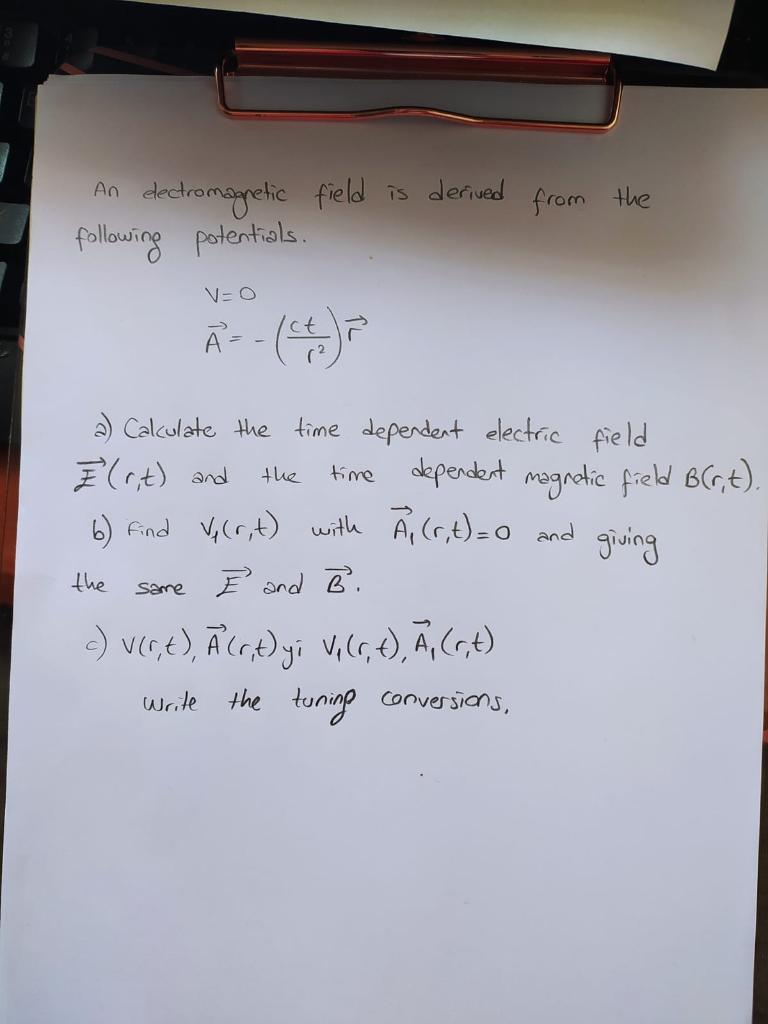 An electromagnetic field is derived from the
following potentials.
V=0
A⃗ = -(ct/r²) r⃗
a) Calculate the time dependent electric field
E⃗(r,t) and the time dependent magnetic field B(r,t).
b) Find V₁(r,t) with A⃗₁(r,t)=0 and giving
the same E⃗ and B⃗.
c) V(r,t), A⃗(r,t)yi V₁(r,t), A⃗₁(r,t)
write the tuning conversions.